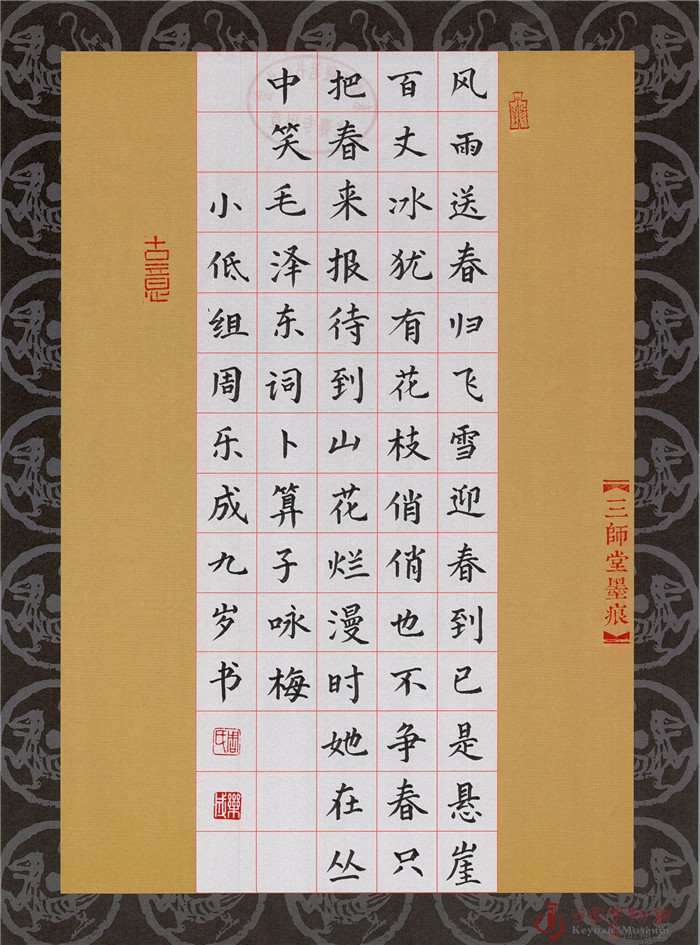 【三師堂墨痕】
风雨送春归飞雪迎春到已是悬崖
百丈冰犹有花枝俏俏也不争春只
把春来报待到山花烂漫时她在丛
中笑毛泽东词卜算子咏梅
小低组周乐成九岁书
周氏
樂成
古意
Keyuan Museum